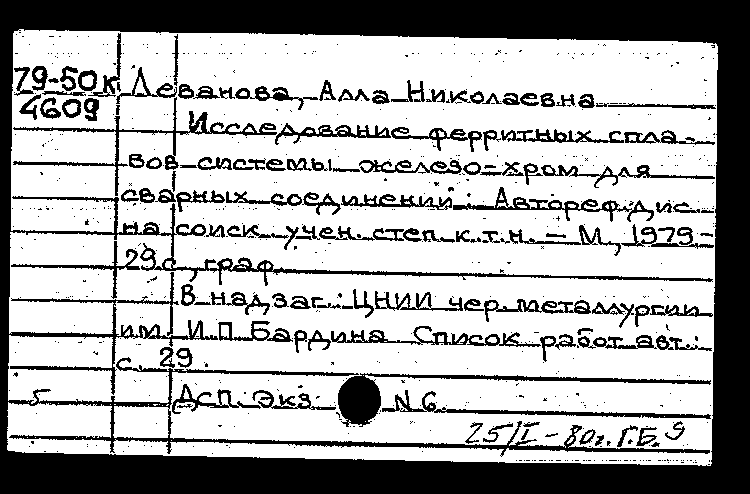 79-50к Леванова, Алла Николаевна
4609
Исследование ферритных спла-
вов системы железо-хром для
сварных соединений : Автореф. дис.
на соиск. учен. степ. к.т.н. - М., 1979 -
29 с., граф.
В надзаг.: ЦНИИ чер. металлургии
им. И.П. Бардина Список работ авт.:
с. 29
5 Дсп. Экз. N 6.
25/I - 80г. Г.Б.